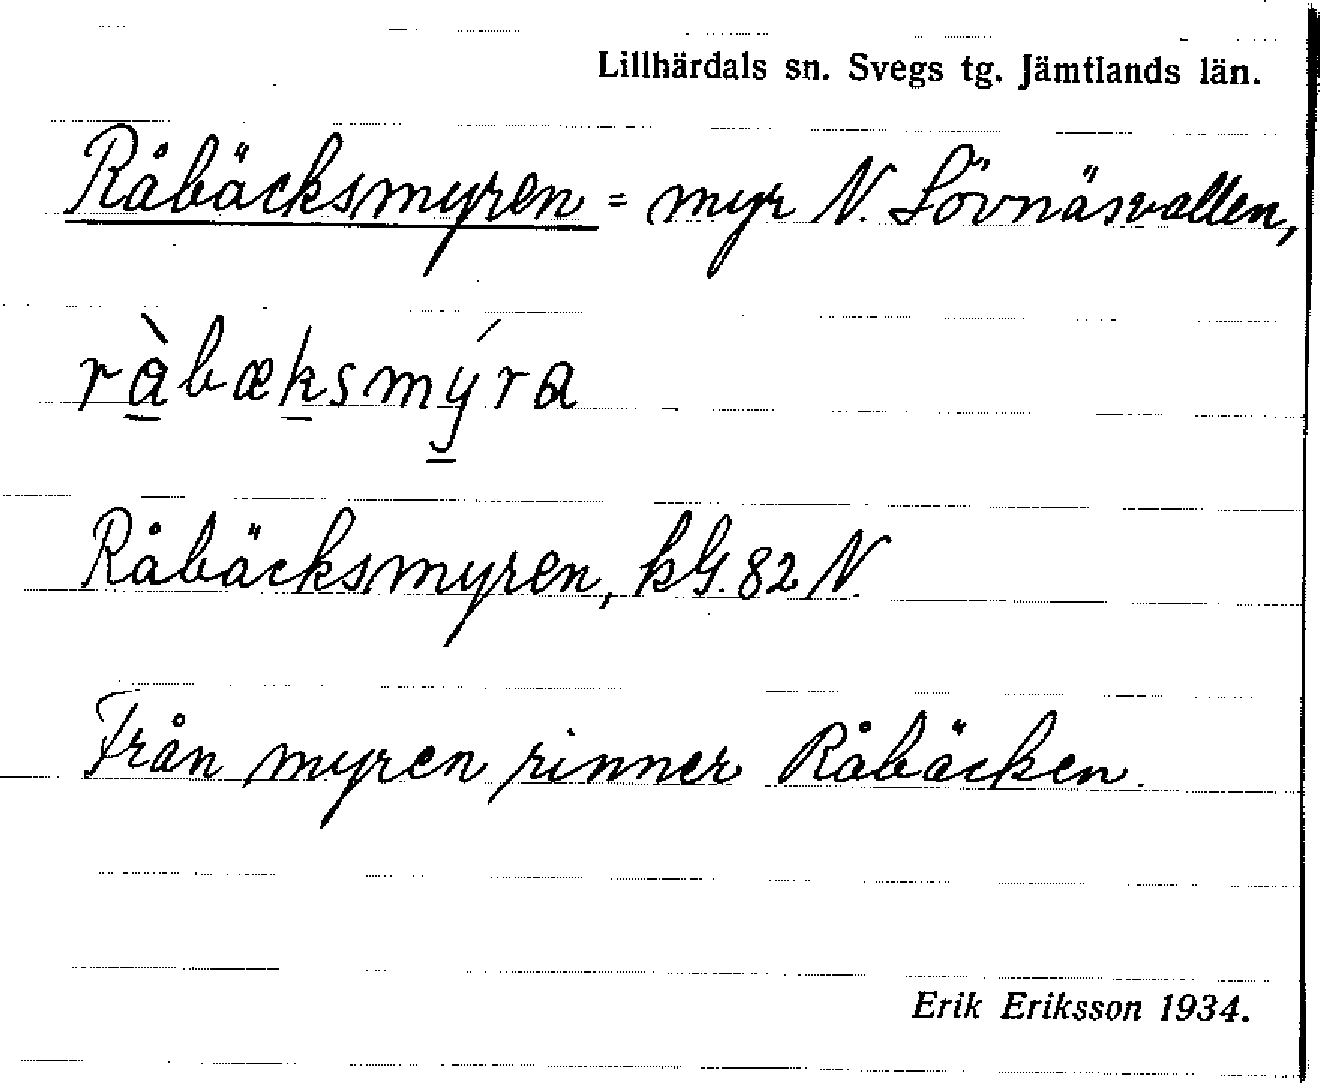 Lillhärdals sn. Svegs tg. Jämtlands län.
Råbäcksmyren = myr N. Sövnäsvallen,
rà̱bæḵsmý̱ra
Råbäcksmyren, kG. 82 N.
Från myren rinner Råbäcken.
Erik Eriksson 1934.